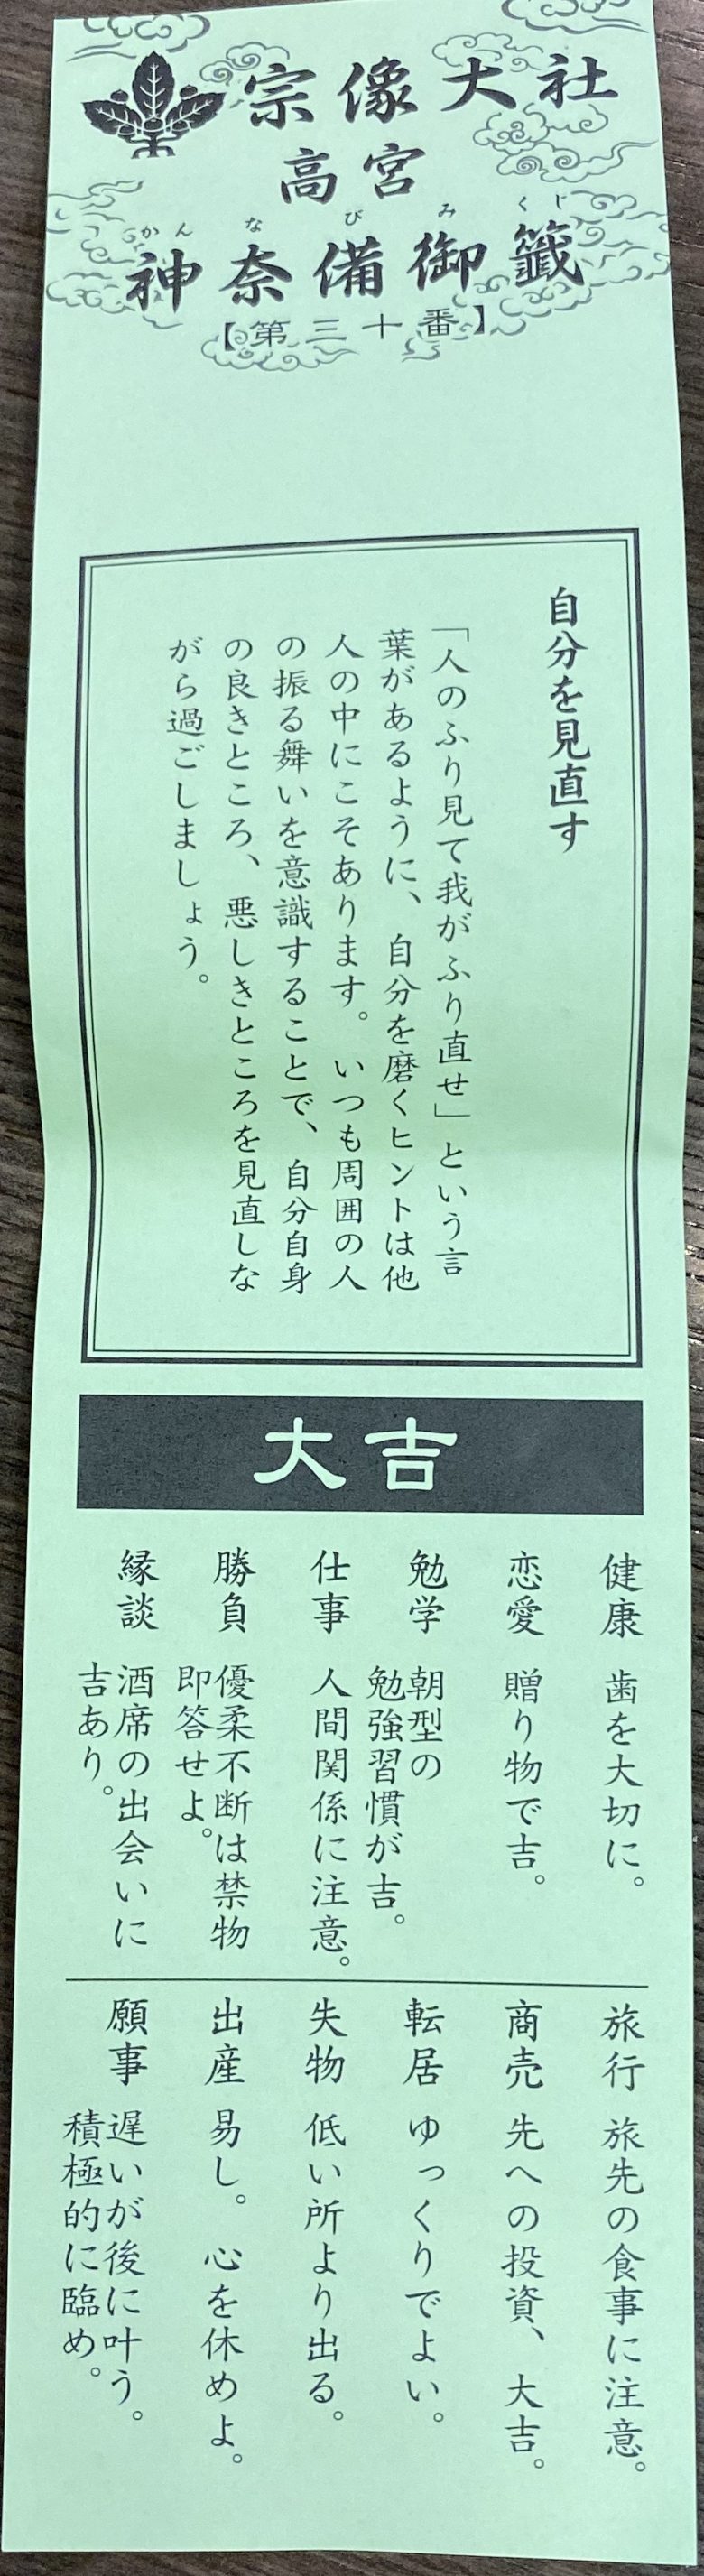 宗像大社
高宮
かんなびみくじ
神奈備御籤
【第三十番】
自分を見直す
「人のふり見て我がふり直せ」という言
葉があるように、自分を磨くヒントは他
人の中にこそあります。いつも周囲の人
の振る舞いを意識することで、自分自身
の良きところ、悪しきところを見直しな
がら過ごしましょう。
大吉
健康 歯を大切に。
恋愛 贈り物で吉。
勉学 朝型の
勉強習慣が吉。
仕事 人間関係に注意。
勝負 優柔不断は禁物
即答せよ。
縁談 酒席の出会いに
吉あり。
旅行 旅先の食事に注意。
商売 先への投資、大吉。
転居 ゆっくりでよい。
失物 低い所より出る。
出産 易し。心を休めよ。
願事 遅いが後に叶う。
積極的に臨め。